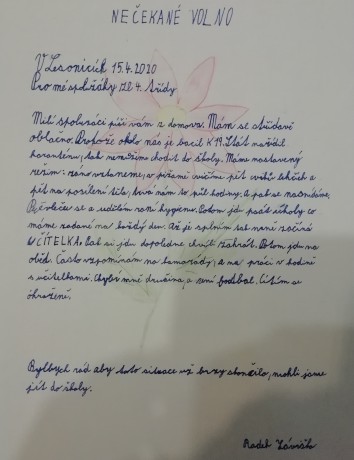 NEČEKANÉ VOLNO
V Lesonicích 15.4.2020
Pro mé spolužáky ze 4. třídy
Milí spolužáci píši vám z domova. Mám se střídavě
oblačno. Protože okolo nás je bacil K19. Stát nařídil
karanténu, tak nemůžeme chodit do školy. Máme nastavený
režim: ráno vstaneme, v pyžamu cvičíme pět cviků
pět na posílení těla, trvá nám to půl hodiny. A pak se nasnídáme.
Převleču se a udělám ranní hygienu. Potom jdu psát úkoly co
máme zadané na každý den. Až je splním tak mně začíná
UČÍTELKA. Pak si jdu dopoledne chvíli zahrát. Potom jdu na
oběd. Často vzpomínám na kamarády, a na práci v hodině
s učitelkami. Chybí mně družina, a není fodbal. Cítím se
ohroženě.
Bylbych rád aby tato situace už brzy skončila, mohli jsme
jít do školy.
Radek